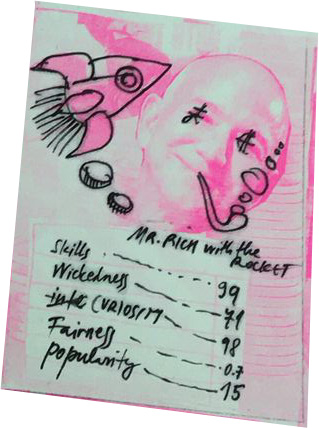 MR. RICH with the
ROCKET
Skills 99
Wickedness 71
CURIOSITY 98
Fairness 0.7
popularity 15